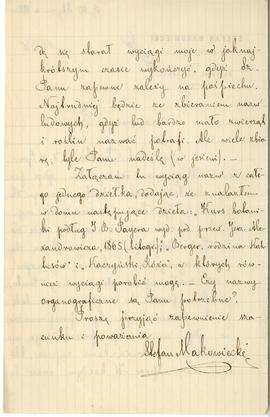 dę się starał wyciągi moje w jaknaj-
krótszym czasie wykończyć, gdyż Sz.
Panu zapewne zależy na pośpiechu.
Najtrudniej będzie ze zbieraniem nazw
ludowych, gdyż lud bardzo mało zwierząt
i roślin nazwać potrafi. Ale wiele zbio-
rę, tyle Panu nadeślę (w jesieni). –
Załączam tu wyciąg nazw z całe-
go jednego dziełka, dodając, że znalazłem
w domu następujące dzieła: „Kurs botani-
ki podług J. B. Payera wyd. pod przew. Jerz. Ale-
xandrowicza, 1865 (litogr.)", Berger, rodzina Kak-
tusów" i „Kaczyński, Róża", z których rów-
nież wyciągi porobić mogę. – Czy nazwy
organograficzne są Panu potrzebne?
Proszę przyjąć zapewnienie sza-
cunku i poważania
Stefan Makowiecki